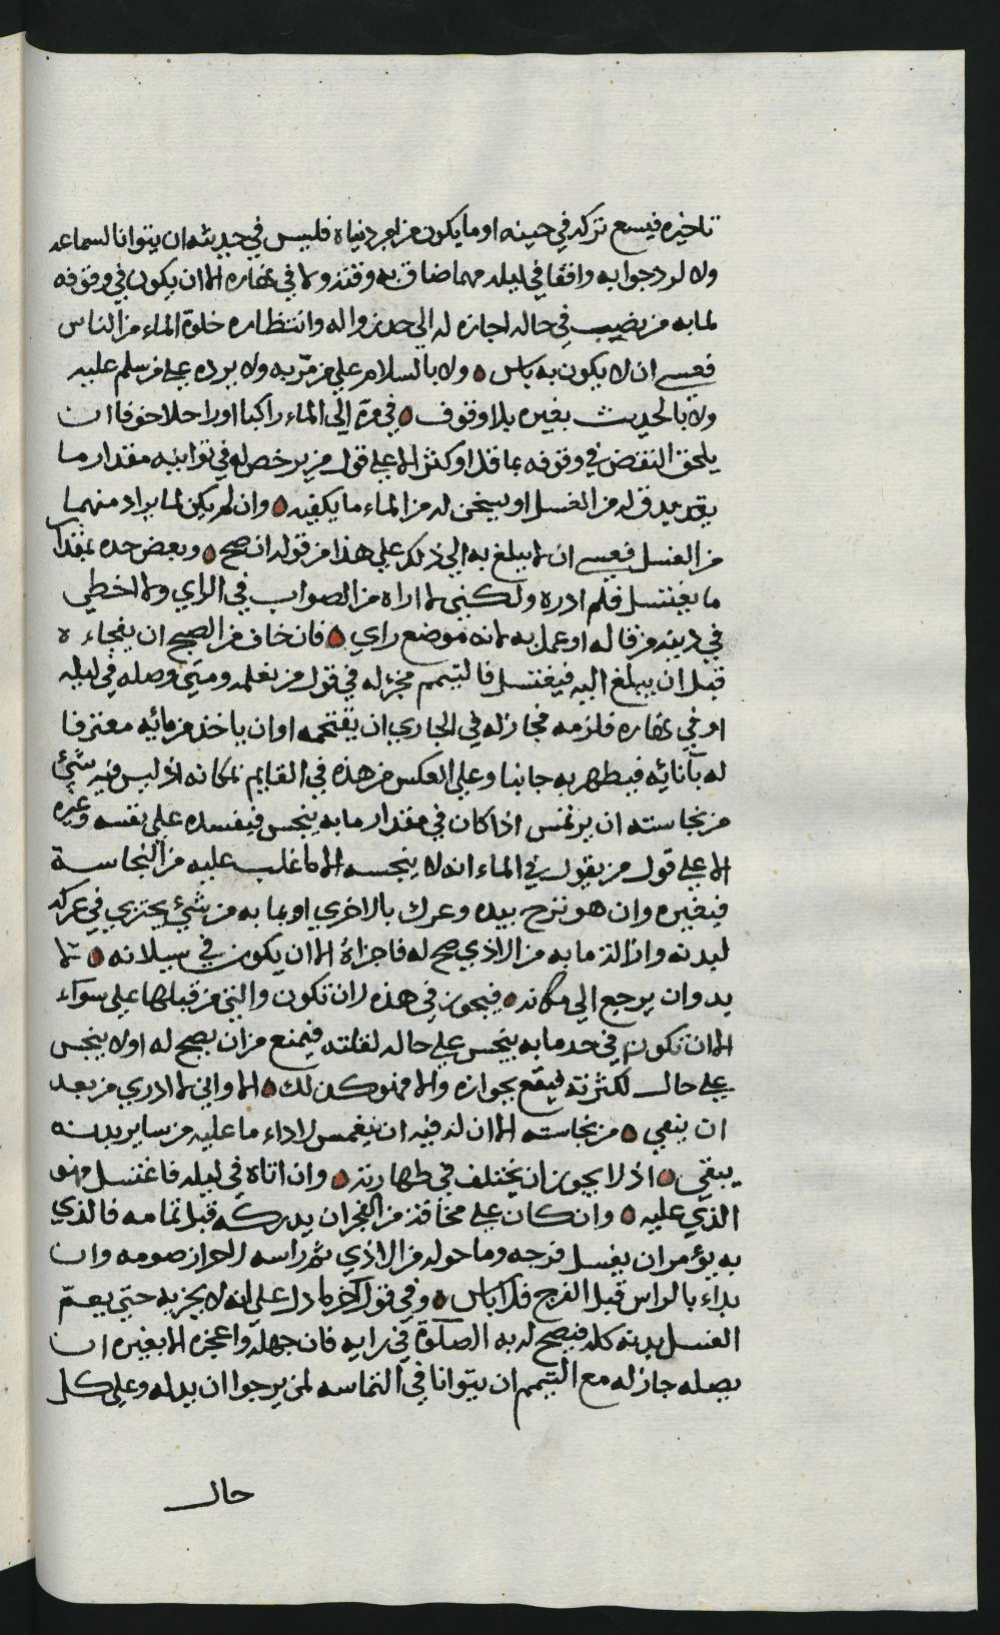 تاخيره فيسع تركه في حينه او ما يكون من امر دنياه فليس في حديثه ان يتوانا لسماعه
ولا لرد جوابه واقفا في ليله مهما ضاق به وقته ولا في نهاره الا ان يكون في وقوفه
لما به من يضيب في حاله اجازه له الي حد زواله وانتظاره خلوة الماء من الناس
فعسي ان لا يكون به باس ولا بالسلام علي من مرّ به ولا برده علي من سلم عليه
ولا بالحديث بغيره بلا وقوف في مرة الي الماء راكبا او راحلا خوفا ان
يلحق النقض في وقوفه بما قل او كثر الا علي قول من يرخص له في توانيه مقدار ما
يقد يدق له من الغسل او يسخن له من الماء ما يكفيه وان لم يكن لما يراد منهما
من الغسل فعسي ان لا يبلغ به الي ذلك علي هذا من قوله ان صح وبعض حده بمقدار
ما يغتسل فلم ادره ولكني لا اراه من الصواب في الراي ولا اخطي
في دينه من قاله او عمل به لانه موضع راي فان خاف من الصبح ان يفجاءه
قبل ان يبلغ اليه فيغتسل فالتيمم مجز له في قول من نعلمه ومتي وصله في ليله
او في نهاره فلزمه فجاز له في الجاري ان يقتحمه او ان ياخذ من مائه مغترفا
له بآنائه فيطهر به جانبا وعلي العكس من هذه في القايم بمكانه اذ ليس فيه شئ
من نجاسته ان يرتمس اذا كان في مقدار ما به ينجس فيفسده علي نفسه وغيره
الا علي قول من يقول في الماء انه لا ينجسه الا ما غلب عليه من النجاسة
فيغيره وان هو نزح بيده وعرك بالاخري او بما به من شئ يجتزي في عركه
لبدنه وازالة ما به من الاذي صح له فاجزاه الا ان يكون في سيلانه لا
يد وان يرجع الي مكانه فيجوز في هذه لان تكون والتي من قبلها علي سواء
الا ان تكون في حد ما به ينجس علي حاله لقلته فيمنع من ان يصح له او لا ينجس
علي حال لكثرته فيقع بجوازه والا فهو كذلك الا واني لا ادري من بعد
ان ينقي من نجاسته الا ان له فيه ان ينغمس لاداء ما عليه من ساير بدنه
يبقي اذ لا يجوز ان يختلف في طهارته وان اتاه في ليله فاغتسل فهو
الذي عليه وان كان علي مخافة من الفجر ان يدركه قبل تمامه فالذي
به يؤمر ان يغسل فرجه وما حوله من الاذي ثم راسه لاحراز صومه وان
بداء بالراس قبل الفرج فلا باس وفي قول آخر ما دل علي انه لا يجزيه حتي يعمّ
الغسل بدنه كله فيصح له به الصلوة في رايه فان جهله واعجزه الا بغيره ان
يصله جاز له مع التيمم ان يتوانا في التماسه لمن يرجوا ان يدله وعلي كل
حال